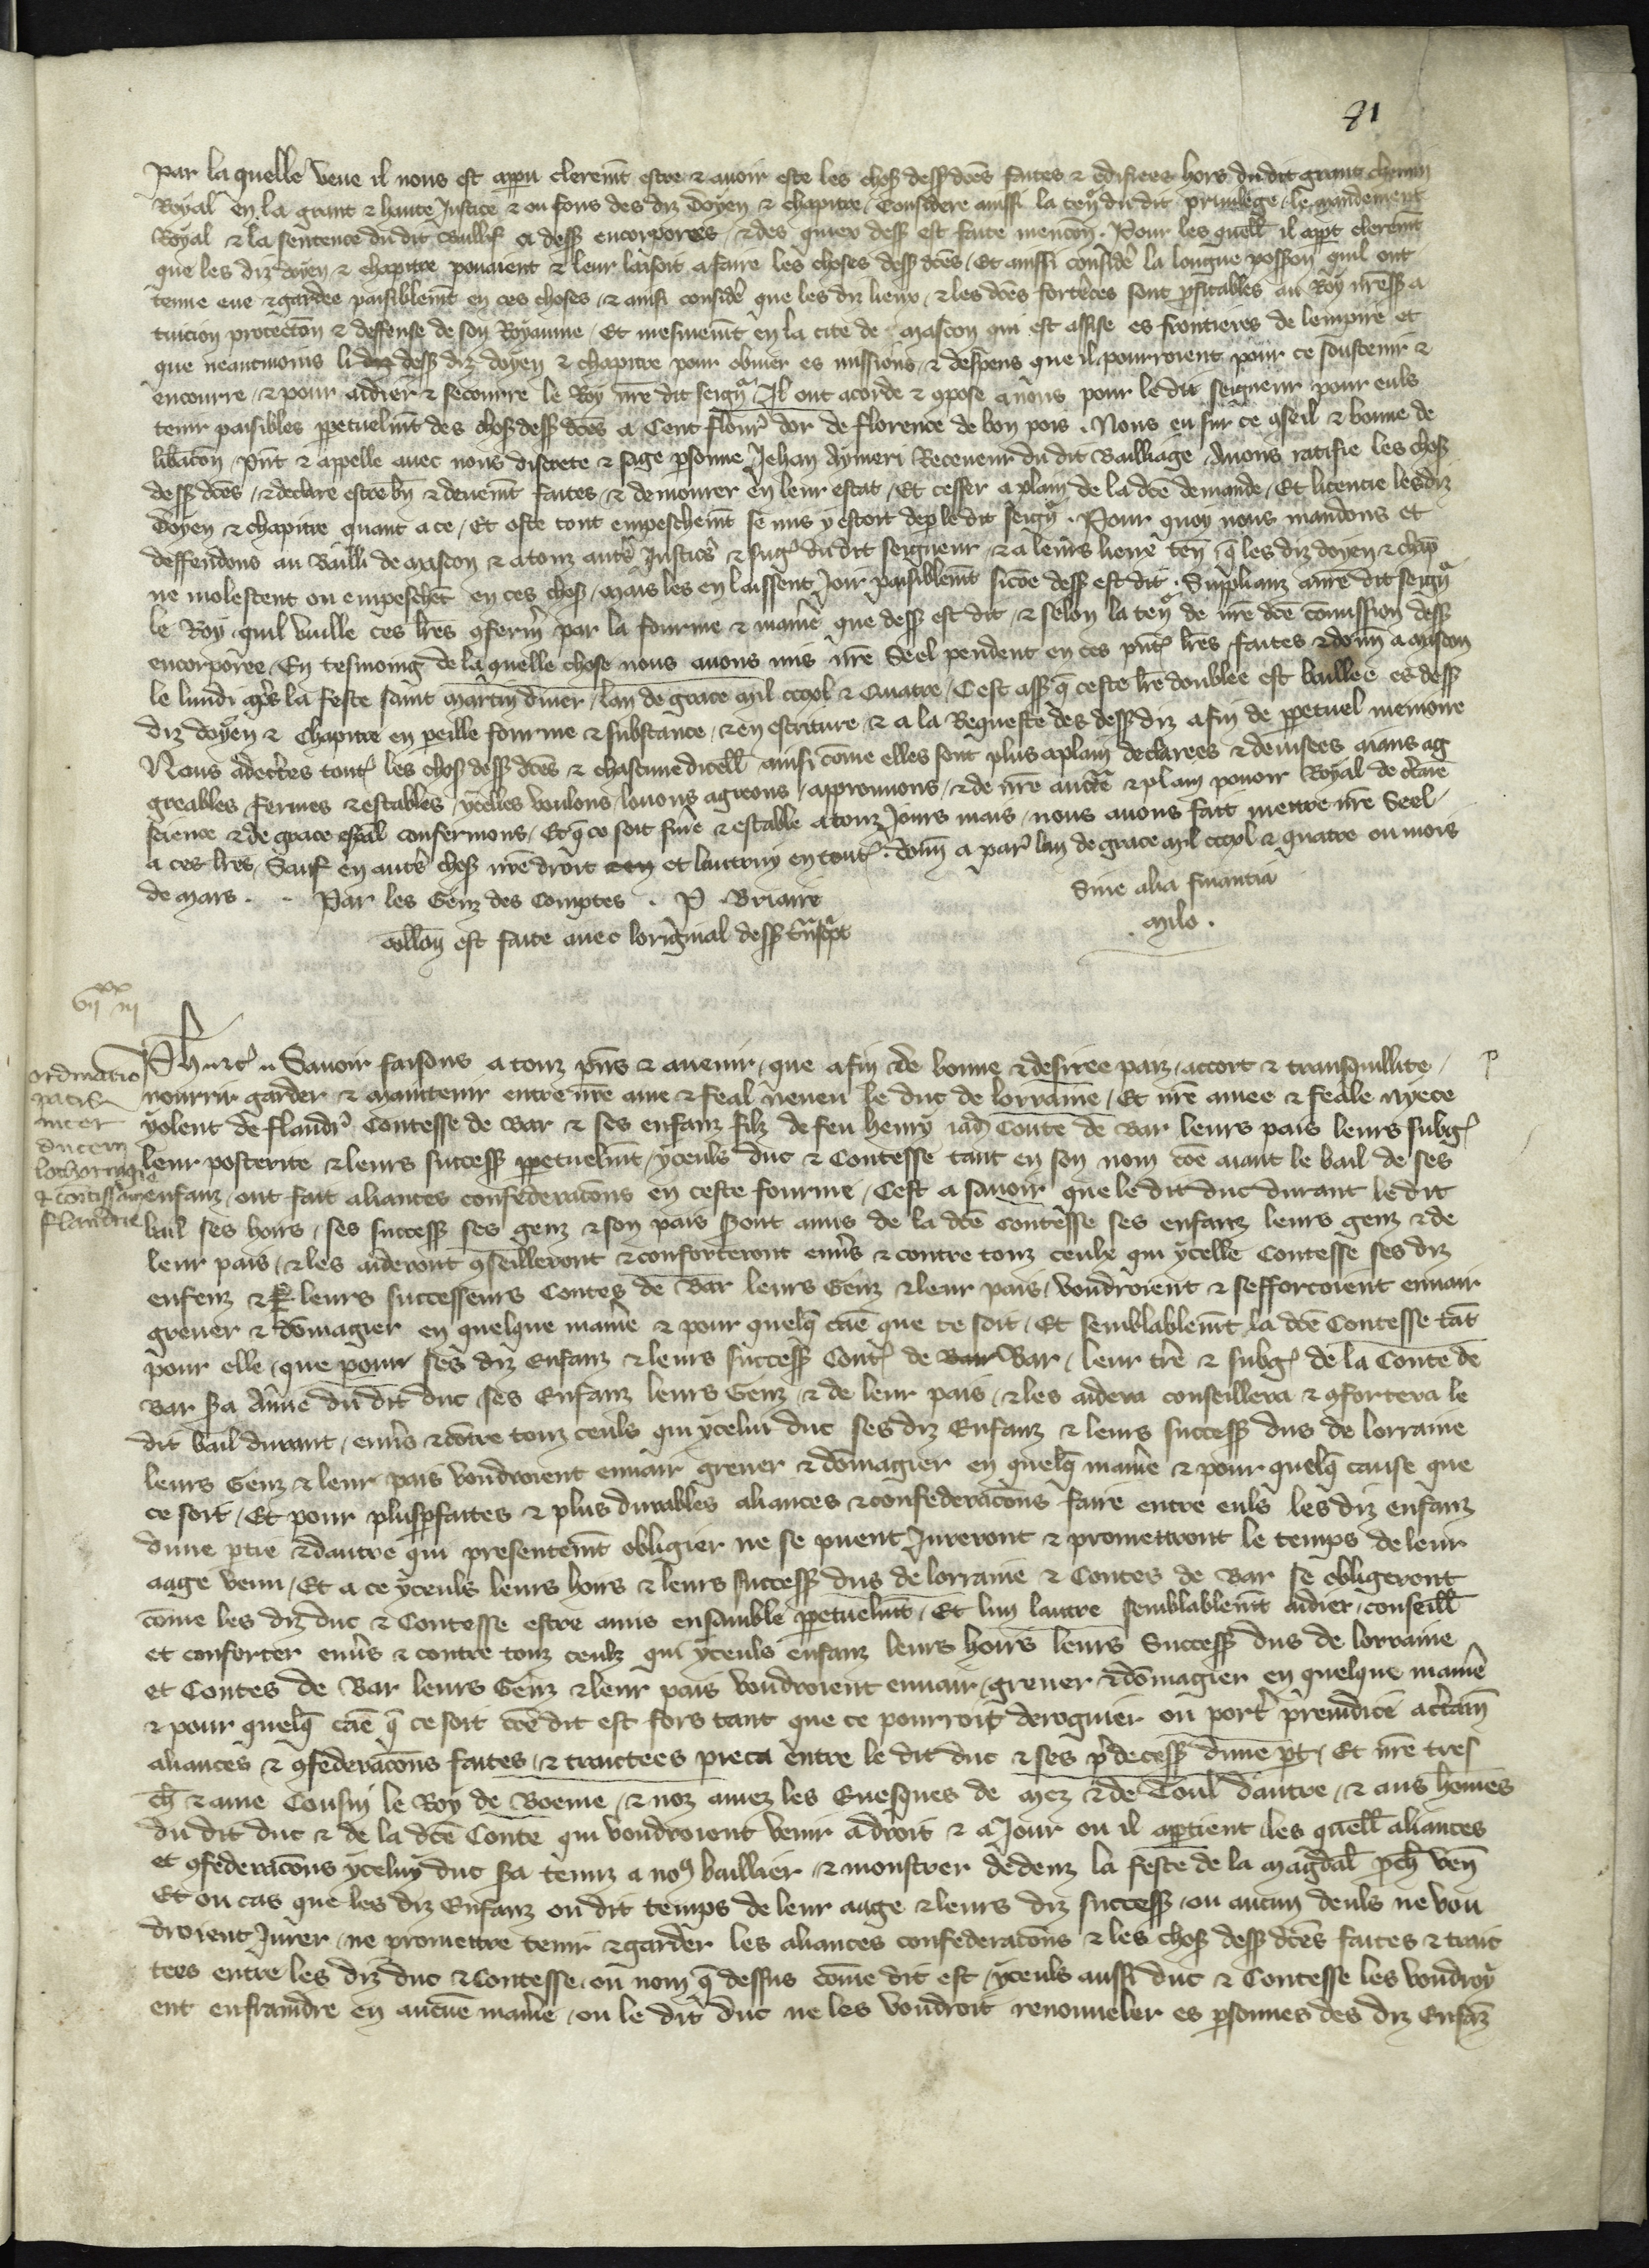 91
Par la quelle veue il nous est apparu cleremt estre & avoir este les chos dess dces faites & edifiees hors du dit grant chemin
Royal en la grant & haute Justice & ou fons des diz doyen & chapitre, Considere aussi la ten du dit privilege, le mandement
Royal & la sentence du dit Baillif ci dess encorporees, & des quiex dess est faite mencon. Pour les quell il appt cleremt
que les diz doyen & chapitre pouaient & leur laisoit a faire les choses dess dces, Et aussi considere la longue possion quil ont
tenue eue & gardee paisiblemt en ces choses, & aussi considere que les diz lieux, & les dces forteces sont pfitables au Roy nre ss a
tuicion protection & deffense de son Royaume, Et mesmemt en la cite de Mascon qui est assise es frontieres de lempire et
que neantmoins li dess diz doyen & chapitre pour obvier es missions & despens que il pourroient pour ce soustenir &
encourre, & pour aidier & secourre le Roy nre dit seign, Il ont acorde & compose a nous pour le dit seigneur pour euls
tenir paisibles ppetuelmt des chos dess dces a Cent flour dor de florence de bon pois. Nous eu sur ce conseil & bonne de
libacon, pnt & appelle avec nous discrete & sage psonne Jehan Aymeri Receveur du dit Bailliage, Avons ratifie les chos
dess dces, & declare estre bn & deuemt faites, & demourer en leur estat, Et cesser a plain de la dce demande, Et licencie les diz
doyen & chapitre quant a ce, Et oste tout empeschemt se mis y estoit de p le dit seign. Pour quoy nous mandons et
deffendons au Bailli de Mascon & a touz autrs Justics & sug du dit seigneur, & a leurs lieux ten q les diz doyen & chap
ne molestent ou empeschet en ces chos, mais les en laissent Joir paisiblemt sicoe dess est dit. Supplianz a nre dit seign
le Roy quil vuille ces lres conferm par la fourme & manie que dess est dit, & selon la ten de nre dce comission dess
encorporee. En tesmoing de la quelle chose nous avons mis nre Seel pendent en ces pnt lres, faites & donn a Mascon
le lundi aps la feste saint martin diver, lan de grace mil cccxl & Quatre, Cest ass q ceste lre doublee est baillee es dess
diz doyen & Chapitre en peille fourme & substance, & en escriture, & a la Requeste des dess diz afin de ppetuel memoire
Nous adectes tout les chos dess dces & chascune dicell ainsi come elles sont plus aplain declarees & devisees aians ag
greables fermes & estables, ycelles voulons, louons agreons, approuvons, & de nre aucte & plain pouoir Royal de ctaine
science & de grace espal confermons, Et q ce soit ferme & estable a touz Jours mais, nous avons fait mettre nre Seel
a ces lres, Sauf en autrs chos nre droit et lautruy en tout. donn a Par lan de grace mil cccxl & quatre ou mois
de mars. . Par les Genz des Comptes . P. Briaire
Sine alia financia
Milo.
Collon est faite avec loriginal dess tnscpt
vii xx iii
Ordinatio
pacis
inter
ducem
lothoringie
& comitissam
flandrie
Ph & ct. Savoir faisons a touz pns & avenir, que afin de bonne & desiree paiz, accort & transquillite,
nourrir garder & maintenir entre nre ame & feal neveu le duc de lorraine, Et nre amee & feale nyece
yolent de flandr Contesse de Bar & ses enfanz filz de feu henry iad Conte de Bar leurs pais leurs subg
leur posterite & leurs success ppetuelmt, yceuls duc & Contesse tant en son nom coe aiant le bail de ses
enfanz, ont fait aliances confederacons en ceste fourme, Cest a savoir que le dit duc durant le dit
bail ses hoirs, ses success ses genz & son pais sont amis de la dce Contesse ses enfanz leurs genz & de
leur pais, & les aideront conseilleront & conforteront envs & contre touz ceulx qui ycelle Contesse ses diz
enfenz & leurs successeurs Contes de Bar leurs Genz & leur pais, voudroient & sefforcoient envair
grever & domagier en quelque manie & pour quelq cae que ce soit, Et semblablemt la dce Contesse tat
pour elle, que pour ses diz Enfanz & leurs success Cont de Bar, leur tre & subg de la Conte de
Bar sa Amie du dit duc, ses Enfanz leurs Genz, & de leur pais, & les aidera conseillera & confortera le
dit bail durant, envs & cotre touz ceuls qui ycelui duc ses diz Enfanz & leurs success dus de lorraine
leurs Genz & leur pais voudroient envair grever & domagier en quelq manie & pour quelq cause que
ce soit, Et pour plus pfaites & plus durables aliances & confederacons faire entre euls les diz enfanz
dune ptie & dautre qui presentemt obligier ne se puent Jureront & promettront le temps de leur
aage venu, Et a ce yceuls leurs hoirs & leurs success dus de lorraine & Contes de Bar se obligeront
come les diz duc & Contesse estre amis ensamble ppetuelmt, Et lun lautre semblablemt aidier, conseill
et conforter envs & contre touz ceulz qui yceuls enfanz leurs hoirs leurs Success dus de lorraine
et Contes de Bar leurs Genz & leur pais voudroient envair, grever & domagier en quelque manie
& pour quelq cae q ce soit coe dit est, fors tant que ce pourroit deroguier ou port preiudice a ctain
aliances & confederacons faites, & traictees pieca entre le dit duc & ses pdecess dune pt, Et nre tres
ch & ame Cousin le Roy de Boeme, & noz amez les Evesques de Mez & de Toul dautre, & aus homes
du dit duc & de la dce Conte qui voudroient venir a droit & a Jour ou il aptient, les quell aliances
et confederacons yceluy duc sa tenuz a no baillier, & monstrer dedenz la feste de la Magdal pch ven
Et ou cas que les diz Enfanz ou dit temps de leur aage & leurs diz success, ou aucun deuls ne vou
droient Jurer, ne promettre tenir & garder les aliances confederacons & les chos dess dces faites & trait
tees entre les diz duc & Contesse, ou nom q dessus come dit est, yceuls aussi duc & Contesse les voudroy
ent enfraindre en aucune manie, ou le dit duc ne les voudroit renouveler es psonnes des diz Enfaz